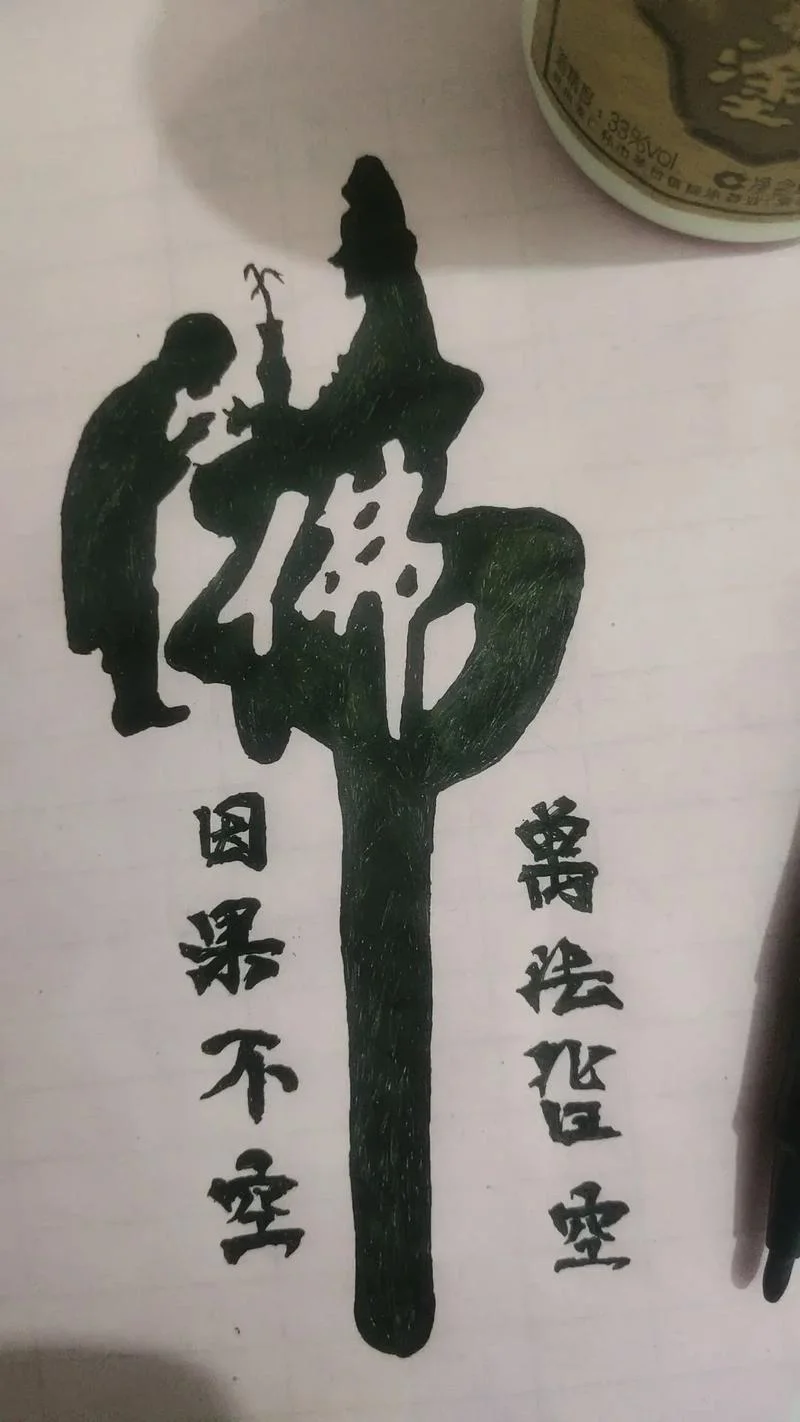 佛
萬法皆空
因果不空
33%vol